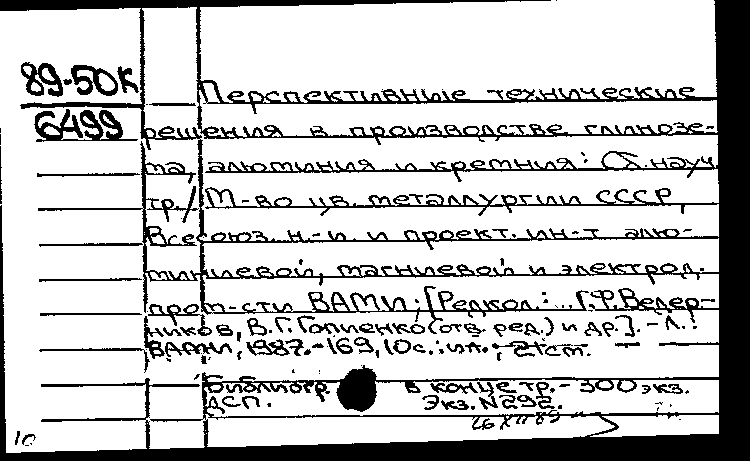 89-50К
6499
Перспективные технические
решения в производстве глинозе-
ма, алюминия и кремния: Сб. науч.
тр. / М-во цв. металлургии СССР,
Всесоюз. н.-и. и проект. ин-т алю-
миниевой, магниевой и электрод.
пром-сти ВАМИ; [Редкол.: .. Г.Ф.Ведер-
ников, В.Г.Гопиенко (отв. ред.) и др.]. - Л.:
ВАМИ, 1987. - 169,10с.: ил.; 21см.
Библиогр. в конце тр. - 300 экз.
ДСП. Экз. N292.
26 XII 89
10